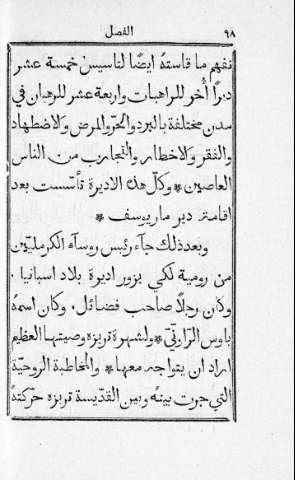 ٩٨ الفصل
نفهم ما قاستهُ ايضًا لتاسيس خمسة عشر
ديرًا أُخر للراهبات واربعة عشر للرهبان في
مدن مختلفة بالبرد والحرّ والمرض والاضطهاد
والفقر والاخطار والتجارب من الناس
العاصين * وكلّ هذه الاديرة تأسّست بعد
اقامة دير مار يوسف *
وبعد ذلك جآء رئيس روسآء الكرمليّين
من رومية لكي يزور اديرة بلاد اسبانيا .
وكان رجلًا صاحب فضائل . وكان اسمهُ
باوس الرّاوتّي * ولشهرة تريزه وصيتها العظيم
اراد ان يتواجه معها * والمخاطبة الروحيّة
التي جرت بينهُ وبين القدّيسة تريزه حرّكتهُ